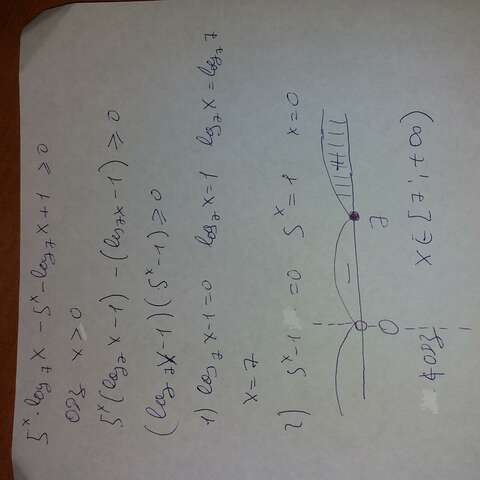 5^x · log_7 x - 5^x - log_7 x + 1 ≥ 0
ОДЗ x > 0
5^x (log_7 x - 1) - (log_7 x - 1) ≥ 0
(log_7 x - 1) (5^x - 1) ≥ 0
1) log_7 x - 1 = 0 log_7 x = 1 log_7 x = log_7 7
x = 7
2) 5^x - 1 = 0 5^x = 1 x = 0
- +
0 7
ОДЗ x ∈ [7; +∞)